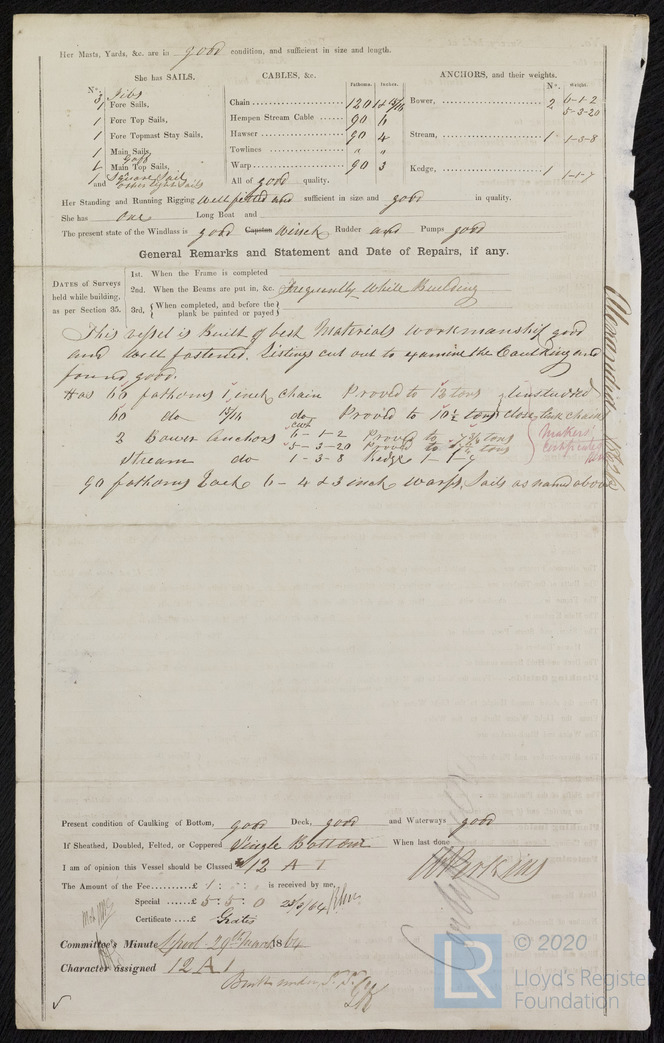 Her Masts, Yards, &c. are in good condition, and sufficient in size and length.
She has SAILS.
CABLES, &c.
Fathoms. Inches.
ANCHORS, and their weights.
N°. Weight.
N°.
3 Jibs
1 Fore Sails,
1 Fore Top Sails,
1 Fore Topmast Stay Sails,
1 Main Sails,
1 Gaff Main Top Sails,
1 and Square Sail
other light Sails
Chain 120
Hempen Stream Cable 90 6
Hawser 90 4
Towlines " "
Warp 90 3
All of good quality.
Bower, 2 6-1-2
5-3-20
Stream, 1 1-3-8
Kedge, 1 1-1-7
Her Standing and Running Rigging Well fitted and sufficient in size and good in quality.
She has One Long Boat and
The present state of the Windlass is good Capstan Winch Rudder and Pumps good
General Remarks and Statement and Date of Repairs, if any.
DATES of Surveys held while building, as per Section 35.
1st. When the Frame is completed
2nd. When the Beams are put in, &c. Frequently While Building
3rd. When completed, and before the plank be painted or payed
This vessel is Built of best Materials workmanship good
and well fastened. Listings cut out to examine the Caulking and
found good.
Has 60 fathoms 1 inch chain Proved to tons unstudded
60 do 15/16 do Proved to 10 1/2 tons close link chain
cwt
2 Bower Anchors 6-1-2 Proved to tons
5-3-20 Proved to tons
Makers Certificates
Stream do 1-3-8 Kedge 1-1-7
90 fathoms Each 6-4 & 3 inch warps, Sails as named above
Alexandria
Present condition of Caulking of Bottom, good Deck, good and Waterways good
If Sheathed, Doubled, Felted, or Coppered Single Bottom When last done
I am of opinion this Vessel should be Classed 12 A 1
The Amount of the Fee £ 1 : : is received by me,
Special £ 5 : 5 : 0
Certificate £ Gratis
Committee's Minute April 29th 1864
Character assigned 12 A 1
LR
© 2020
Lloyd's Register
Foundation